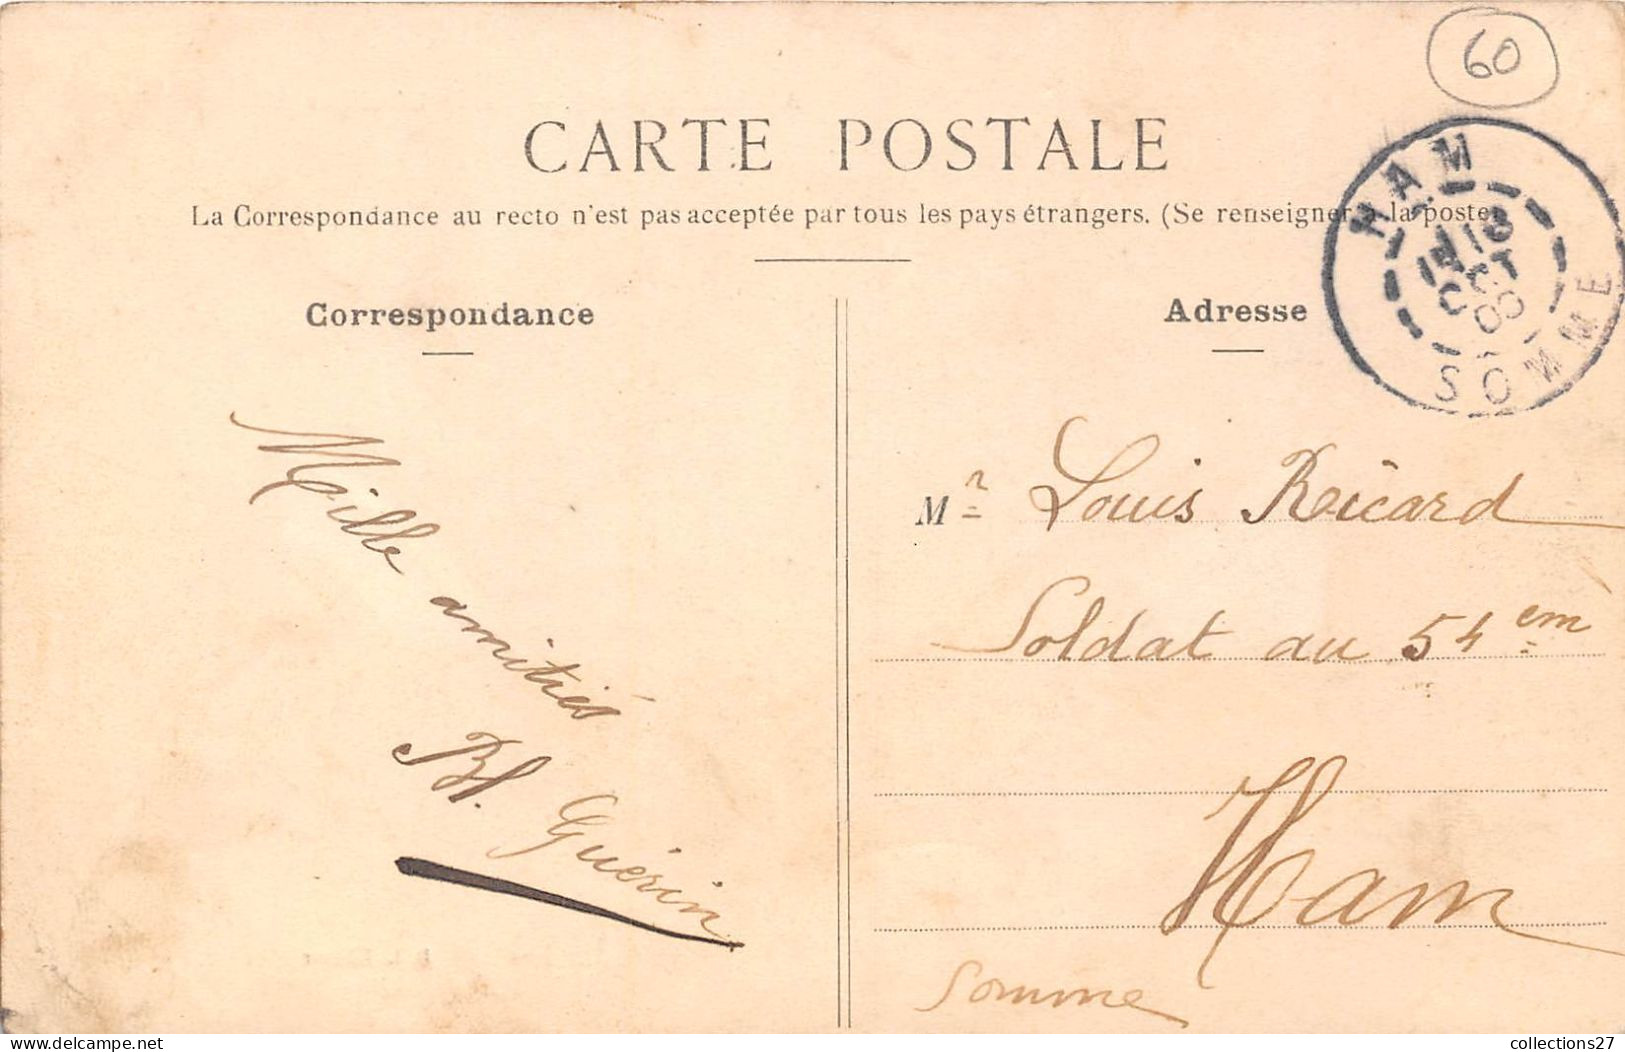 60
CARTE POSTALE
La Correspondance au recto n'est pas acceptée par tous les pays étrangers. (Se renseigner à la poste
HAM
OCT
SOMME
Correspondance
Adresse
Mille amitiés
Bl. Guérin
Mr Louis Ricard
Soldat au 54 em
Ham
Somme
collections27